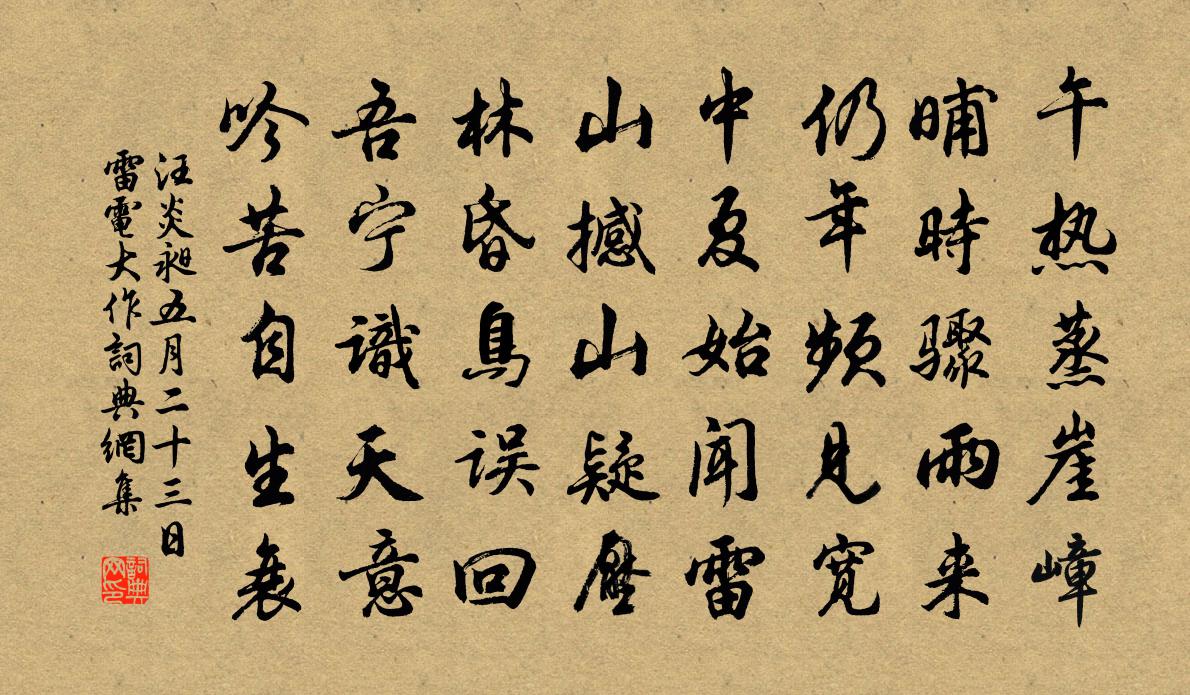 午热蒸崖嶂
晡時骤雨来
仍年頻见寛
中夏始闻雷
山撼山疑壓
林昏鳥误回
吾宁識天意
吟苦自生衰
汪炎昶五月二十三日
雷電大作詞典網集
詞典
网印